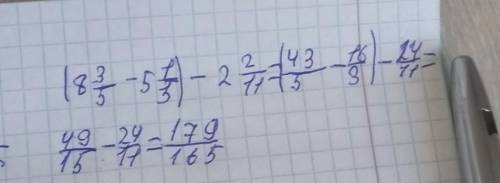 (8 3/5 - 5 1/3) - 2 2/11 = (43/5 - 16/3) - 24/11 =
49/15 - 24/11 = 179/165